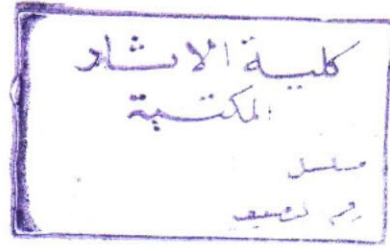 كلية الانشاد
المكتبة
مسلسل
رقم التصنيف